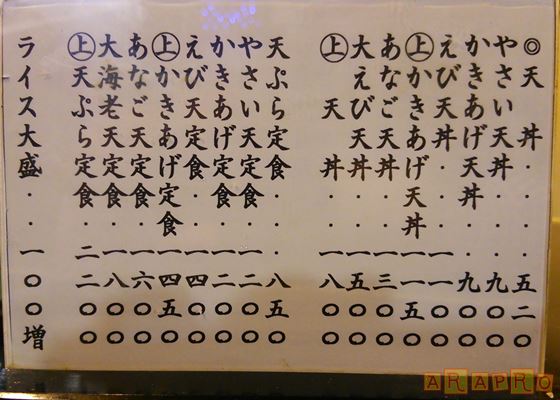 ◎天丼・・五二〇
やさい天丼・・九〇〇
かきあげ天丼・九〇〇
えび天丼・・一一〇〇
㊤かきあげ天丼一一五〇
あなご天丼・・一三〇〇
大えび天丼・・一五〇〇
㊤天丼・・一八〇〇
天ぷら定食・・・八五〇
やさい天定食・一二〇〇
かきあげ定食・一二〇〇
えび天定食・・一四〇〇
㊤かきあげ定食一四五〇
あなご天定食・一六〇〇
大海老天定食・一八〇〇
㊤天ぷら定食・二二〇〇
ライス大盛・・一〇〇増
ARAPRO